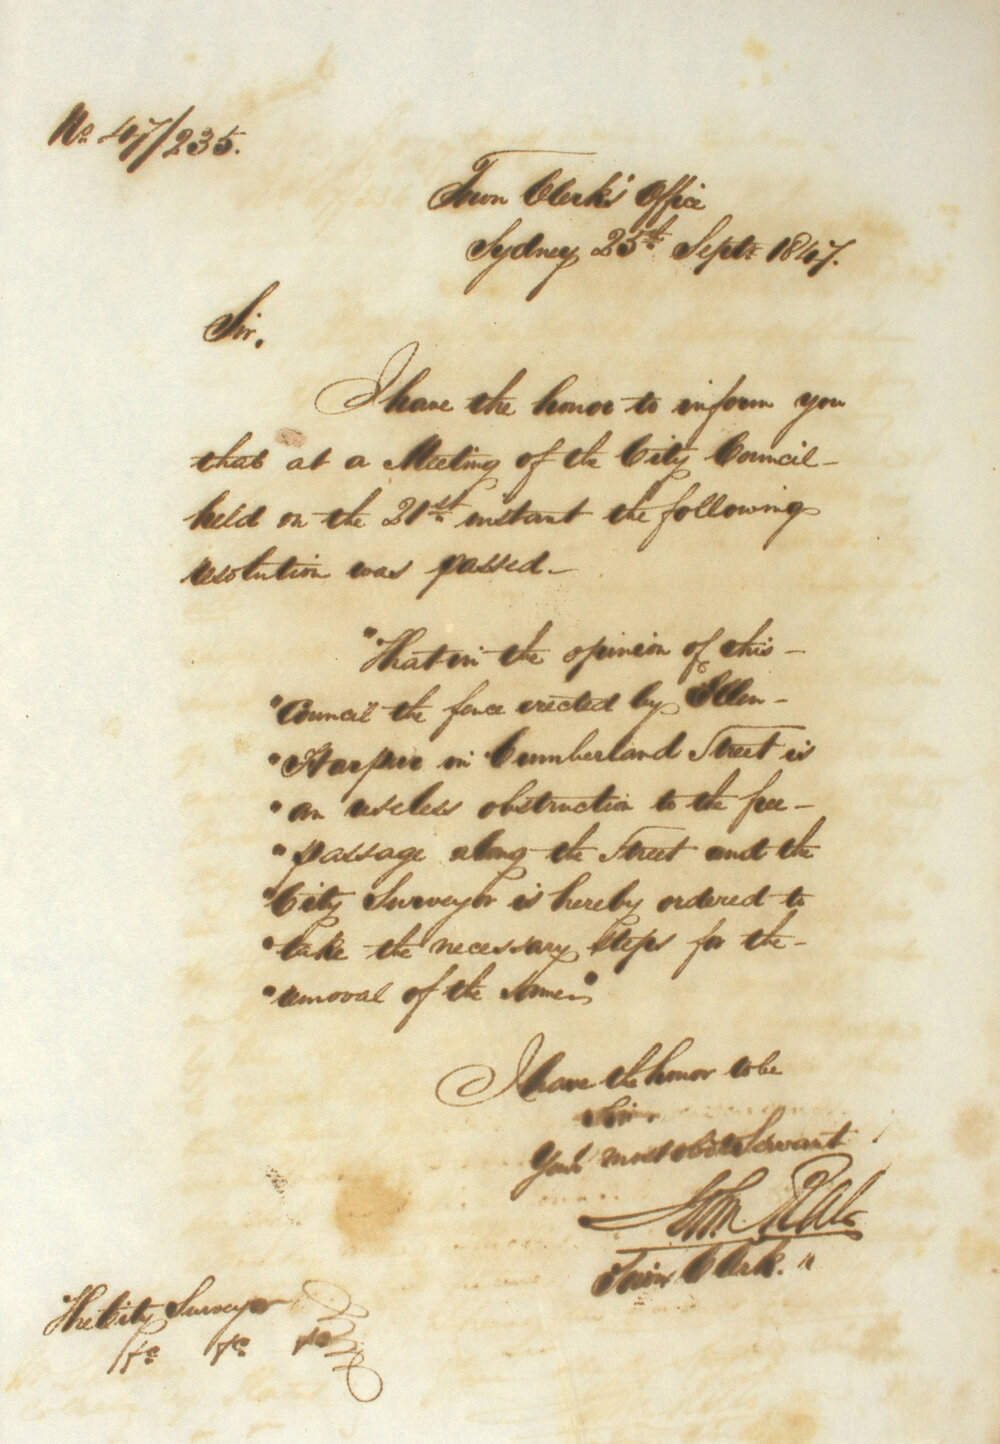 No. 47/235.
Town Clerk's Office
Sydney 25th Septr 1847.
Sir,
I have the honor to inform you
that at a Meeting of the City Council
held on the 21st instant the following
resolution was passed.
"That in the opinion of this
"Council the fence erected by Ellen
"Harper in Cumberland Street is
"an useless obstruction to the free
"passage along the Street and the
"City Surveyor is hereby ordered to
"take the necessary steps for the
"removal of the same"
I have the honor to be
Sir
Your most obdt Servant
John Rae
Town Clerk.
The City Surveyor
&c &c &c